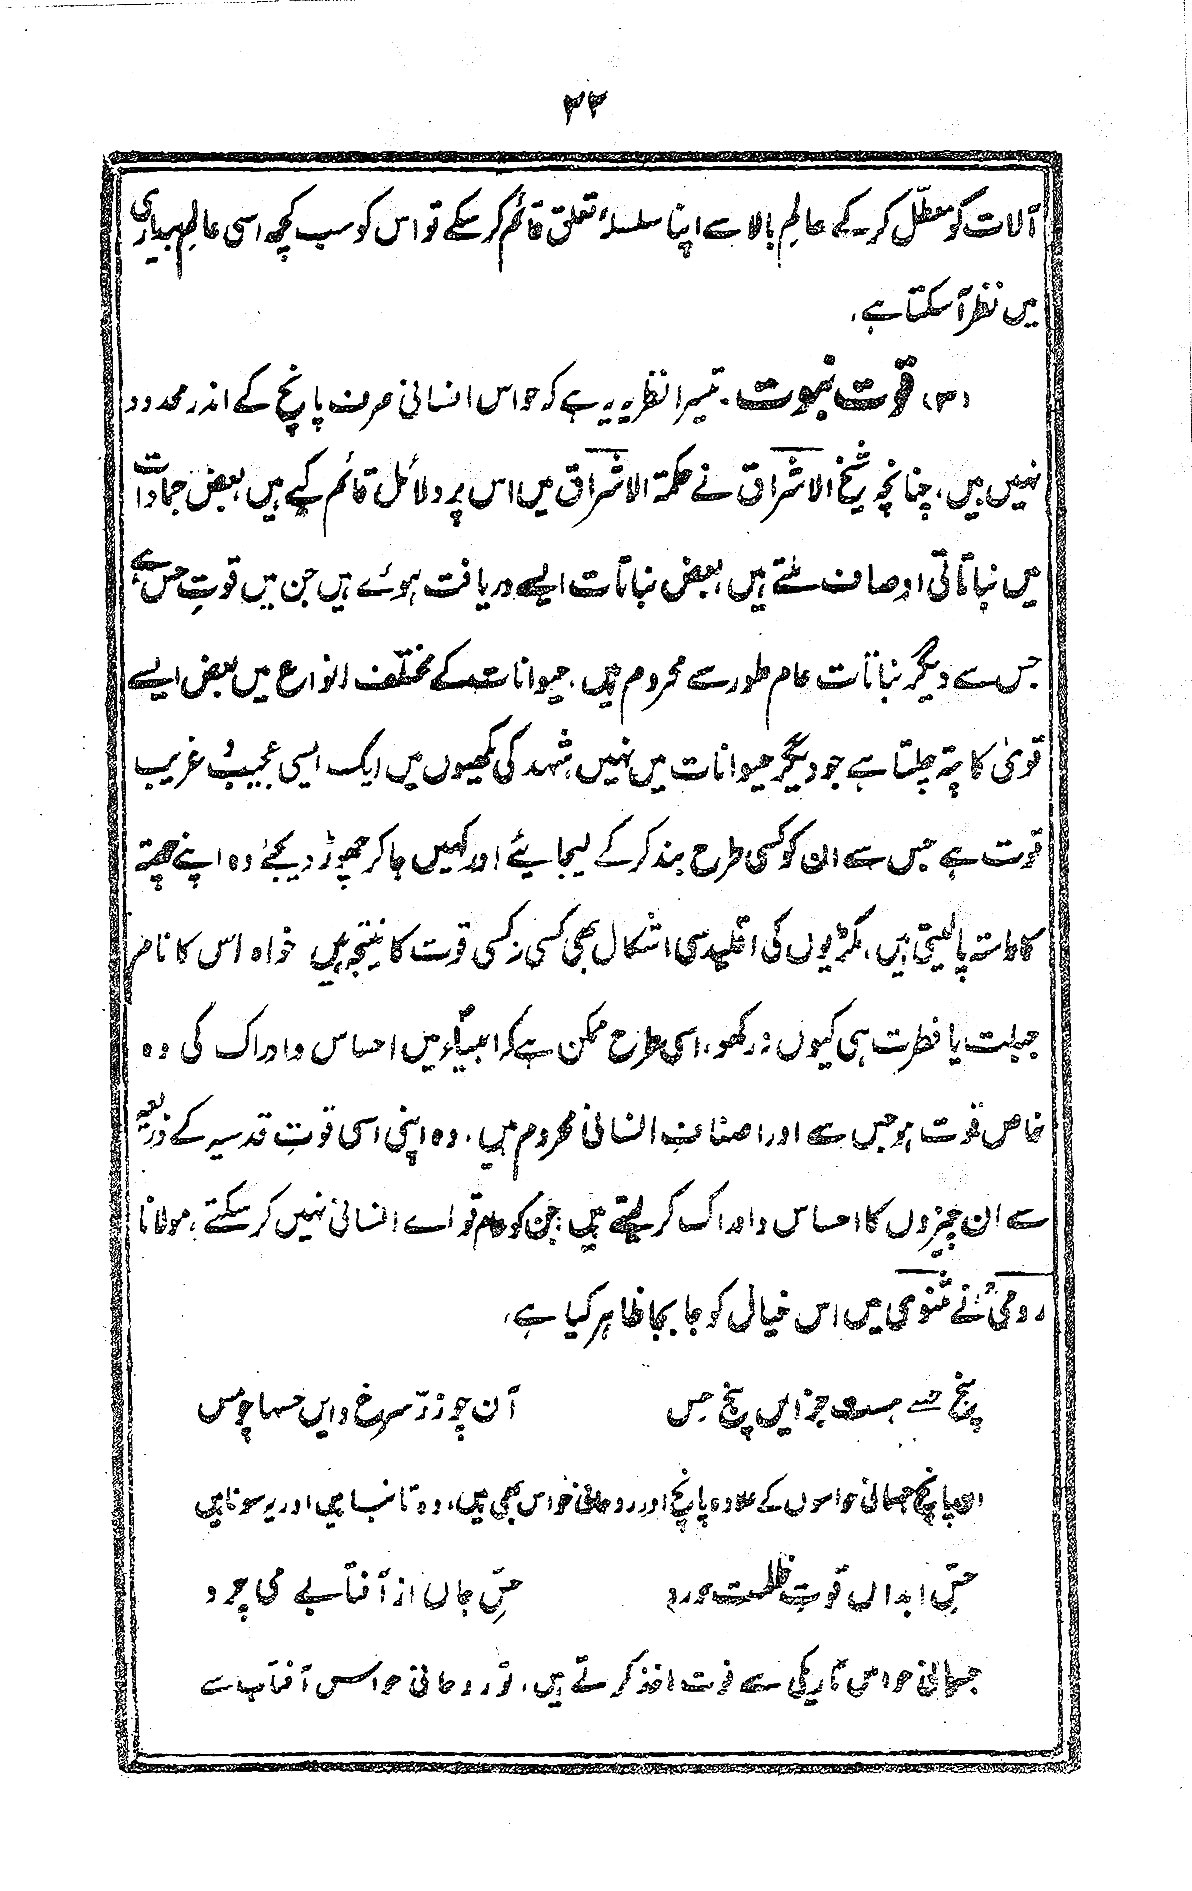 ۳۳
آلات کو معطّل کر کے عالمِ بالا سے اپنا سلسلۂ تعلق قائم کر سکے تو اس کو سب کچھ اسی عالمِ بیداری
میں نظر آسکتا ہے،
(۳) قوتِ نبوت، تیسرا نظریہ یہ ہے کہ حواس انسانی صرف پانچ کے اندر محدود
نہیں ہیں، چنانچہ شیخ الاشراق نے حکمۃ الاشراق میں اس پر دلائل قائم کیے ہیں، بعض جمادات
میں نباتاتی اوصاف ملتے ہیں، بعض نباتات ایسے دریافت ہوئے ہیں جن میں قوتِ حس ہے
جس سے دیگر نباتات عام طور سے محروم ہیں، حیوانات کے مختلف انواع میں بعض ایسے
قویٰ کا پتہ چلتا ہے جو دیگر حیوانات میں نہیں، شہد کی مکھیوں میں ایک ایسی عجیب و غریب
قوت ہے جس سے ان کو کسی طرح بند کر کے لیجائیے اور کہیں جا کر چھوڑ دیجئے وہ اپنے چھتہ
کا راستہ پالیتی ہیں، مکڑیوں کی اقلیدسی اشکال بھی کسی نہ کسی قوت کا نتیجہ ہیں خواہ اس کا نام
جبلت یا فطرت ہی کیوں نہ رکھو، اسی طرح ممکن ہے کہ انبیاءؑ میں احساس و ادراک کی وہ
خاص قوت ہو جس سے اور اصنافِ انسانی محروم ہیں، وہ اپنی اسی قوتِ قدسیہ کے ذریعہ
سے ان چیزوں کا احساس و ادراک کر لیتے ہیں، جن کو عام قواے انسانی نہیں کر سکتے، مولانا
رومیؒ نے مثنوی میں اس خیال کو جا بجا ظاہر کیا ہے،
پنج حسے ہست جز ایں پنج حس آن چو زر سرخ و ایں حسہا چو مس
ان پانچ جسمانی حواسوں کے علاوہ پانچ اور روحانی حواس بھی ہیں، وہ تانبا ہیں اور یہ سونا ہیں
حسِّ ابداں قوتِ ظلمت خورد حسِّ جاں از آفتابے می چرد
جسمانی حواس تاریکی سے قوت اخذ کرتے ہیں، اور روحانی حواس آفتاب سے